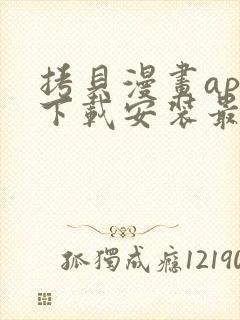 拷貝漫畫ap
下載安裝最
孤獨成癮12190